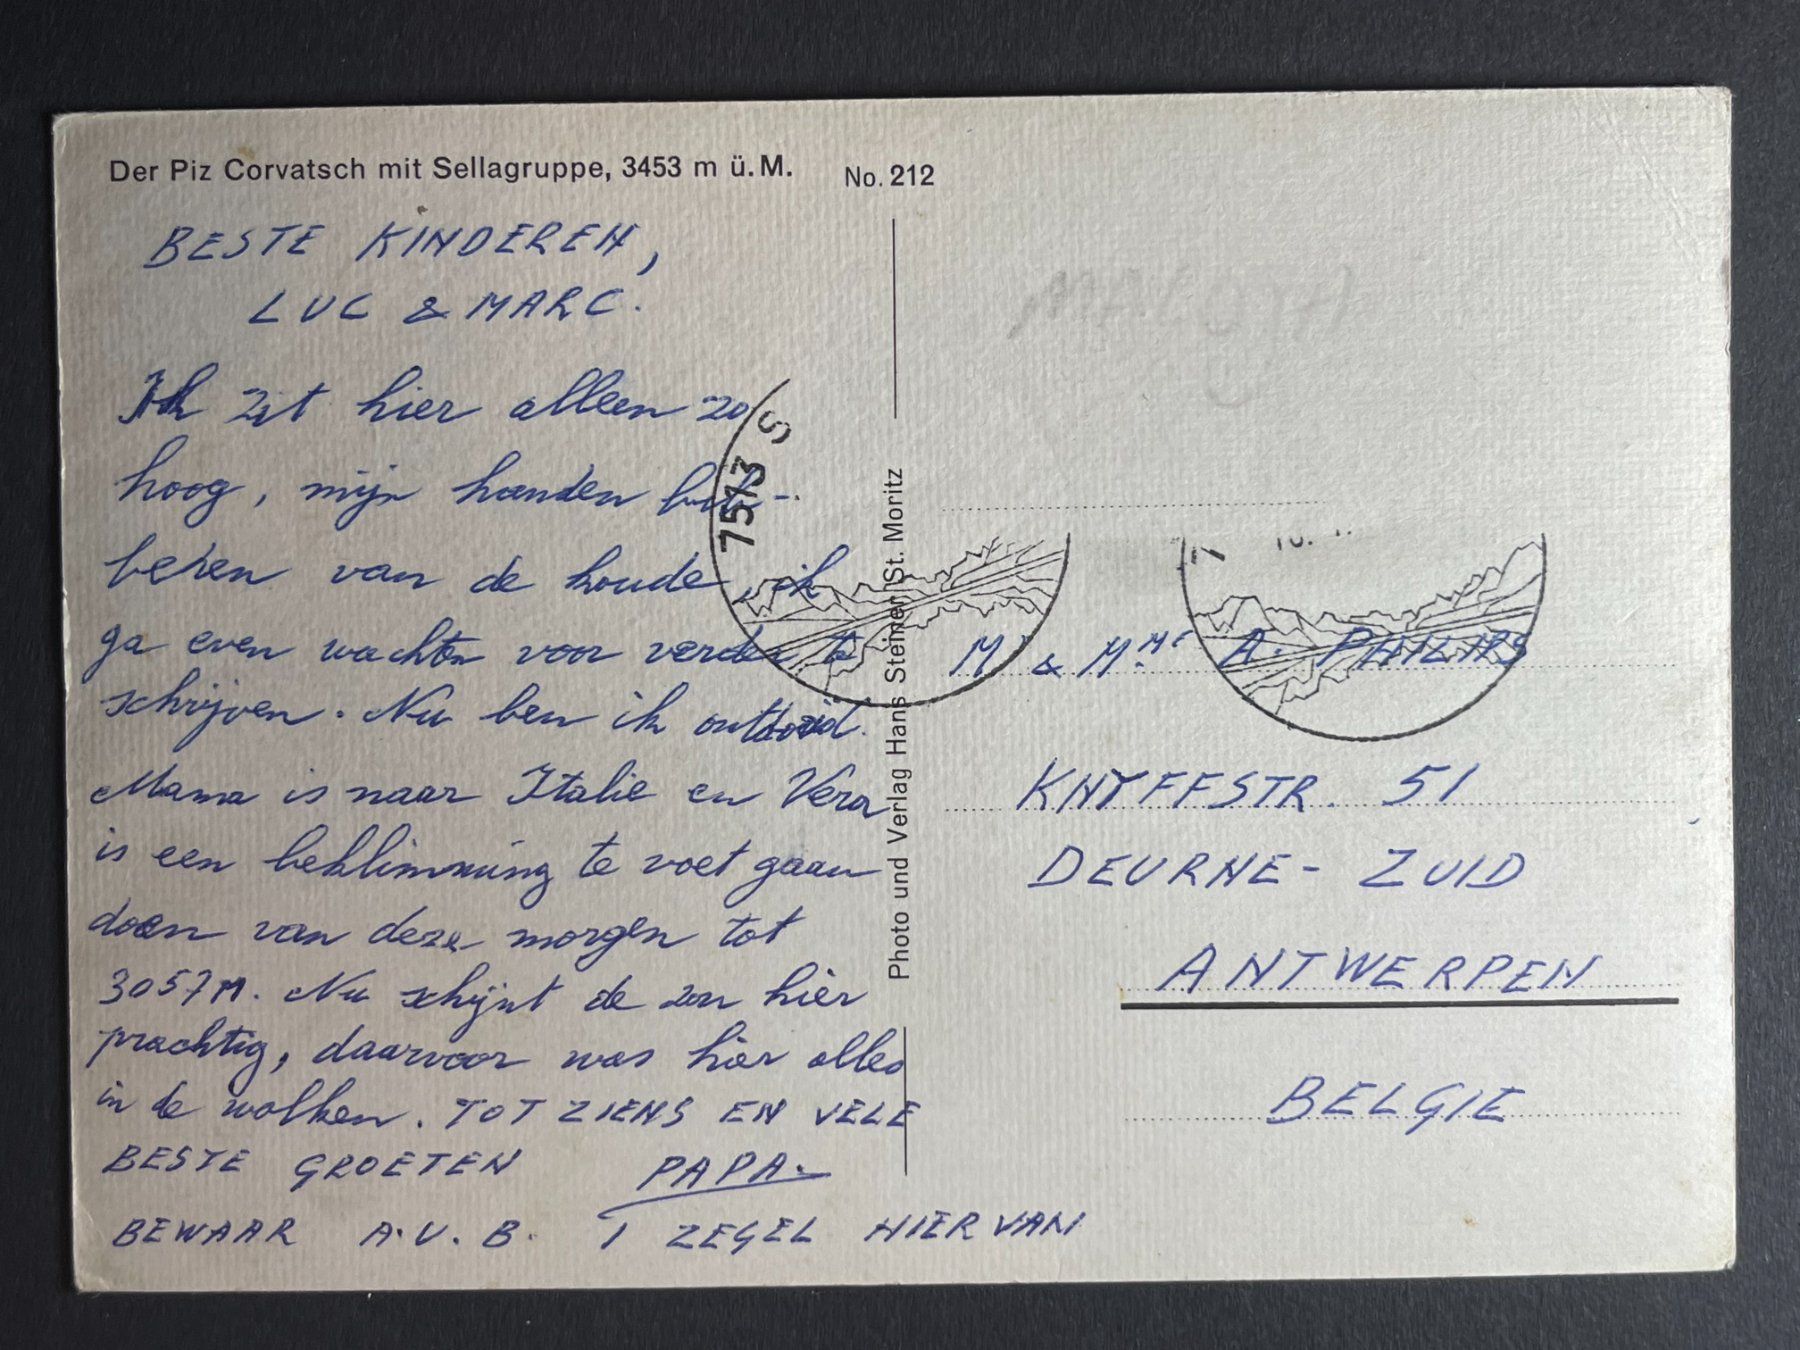 Der Piz Corvatsch mit Sellagruppe, 3453 m ü. M. No. 212
BESTE KINDEREN,
LUC & MARC.
Ik zit hier alleen zo
hoog, mijn handen
beven van de koude, ik
ga even wachten voor verder te
schrijven. Nu ben ik ontdooid.
Mama is naar Italie en Vera
is een beklimming te voet gaan
doen van deze morgen tot
3057 M. Nu schijnt de zon hier
prachtig, daarvoor was hier alles
in de wolken. TOT ZIENS EN VELE
BESTE GROETEN PAPA.
BEWAAR A.U.B. 1 ZEGEL HIERVAN
Photo und Verlag Hans Steiner, St. Moritz
7513 S
Mr & MME A. PHILIPS
KNYFFSTR. 51
DEURNE - ZUID
ANTWERPEN
BELGIE